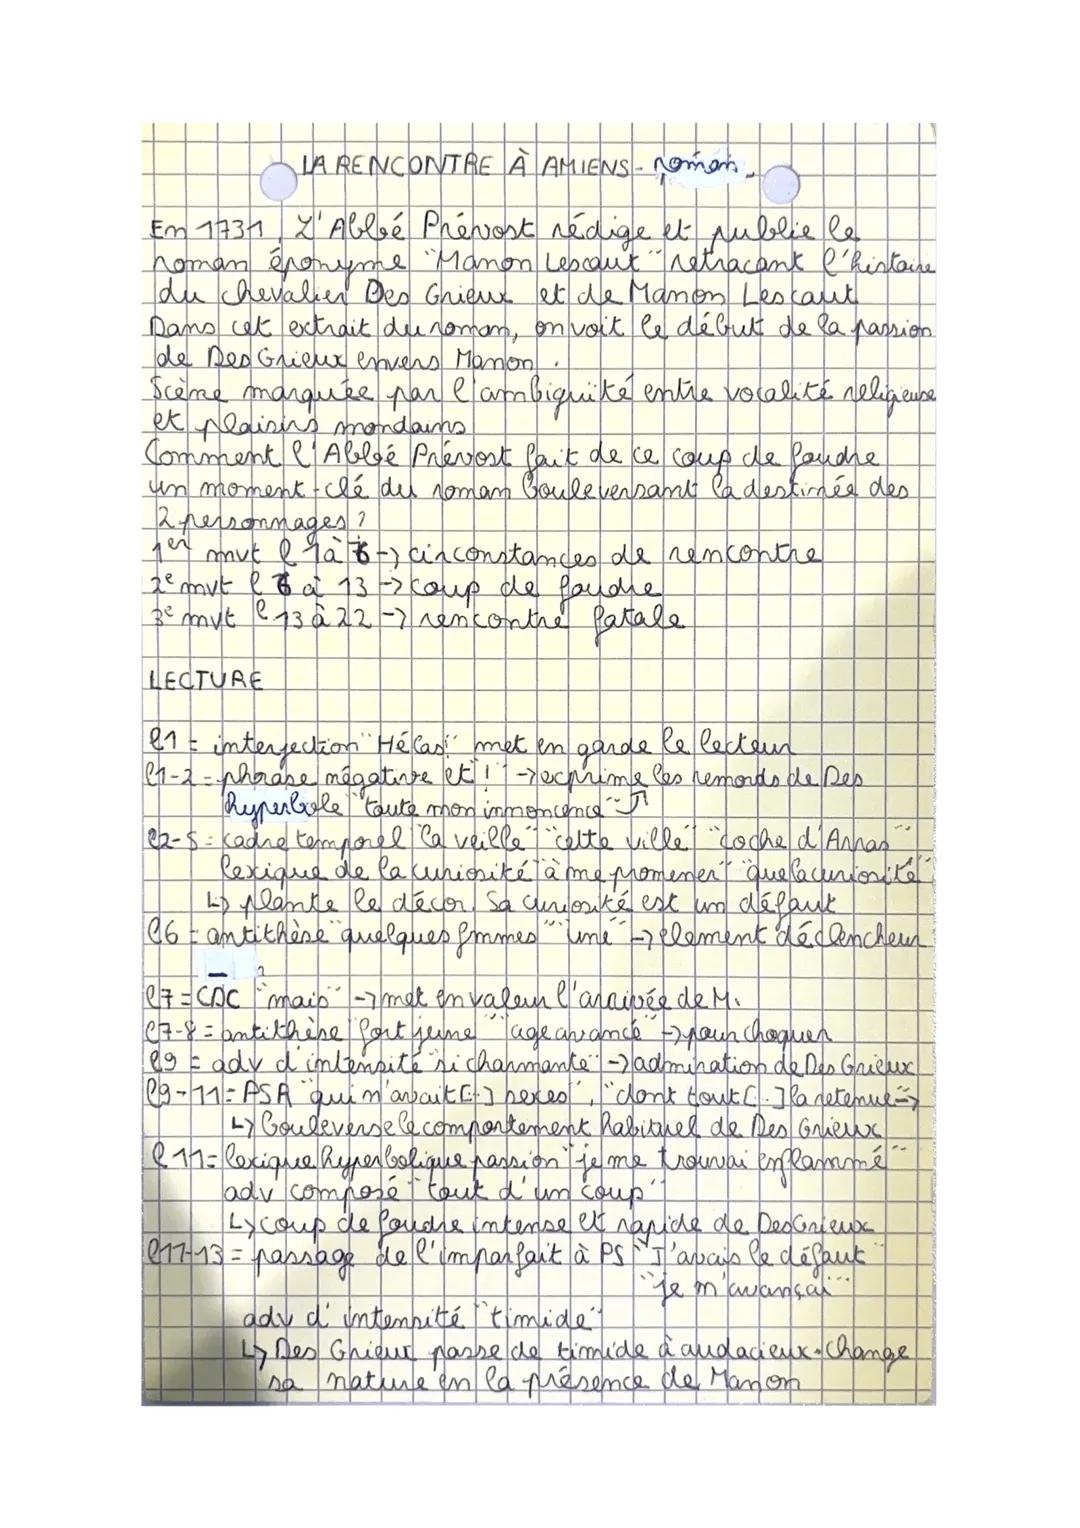 LA RENCONTRE À AMIENS - roman.
En 1731, L'Abbé Prévost rédige et publie le
roman éponyme "Manon Lescaut" retraçant l'histoire
du chevalier Des Grieux et de Manon Lescaut
Dans cet extrait du roman, on voit le début de la passion
de Des Grieux envers Manon.
Scène marquée par l'ambiguité entre vocalité religieuse
et plaisirs mondains
Comment l'Abbé Prévost fait de ce coup de foudre
un moment-clé du roman bouleversant la destinée des
2 personnages ?
1er mvt l 1 à 6 -> circonstances de rencontre
2e mvt l 6 à 13 -> coup de foudre
3e mvt l 13 à 22 -> rencontre fatale
LECTURE
l1 = interjection "Hélas!" met en garde le lecteur
l1-2 = phrase négative et ! -> exprime les remords de Des
hyperbole "toute mon innoncence"
l2-5 = cadre temporel "la veille" "cette ville" "coche d'Arras"
lexique de la curiosité "à me promener" "que la curiosité"
↳ plante le décor. Sa curiosité est un défaut
l6 = antithèse "quelques femmes" "une" -> élement déclencheur
l7 = CDC "mais" -> met en valeur l'arrivée de M.
l7-8 = antithèse "fort jeune" "age avancé" -> pour choquer
l9 = adv d'intensité "si charmante" -> admiration de Des Grieux
l9-11 = PSR "qui n'avait [..] sexes", "dont tout [..] la retenue" ->
↳ bouleverse le comportement habituel de Des Grieux
l 11 = lexique hyperbolique passion "je me trouvai enflammé"
adv composé "tout d'un coup"
↳ coup de foudre intense et rapide de Des Grieux
l11-13 = passage de l'imparfait à PS "J'avais le défaut"
"je m'avançai"
adv d'intensité "timide"
↳ Des Grieux passe de timide à audacieux. Change
sa nature en la présence de Manon